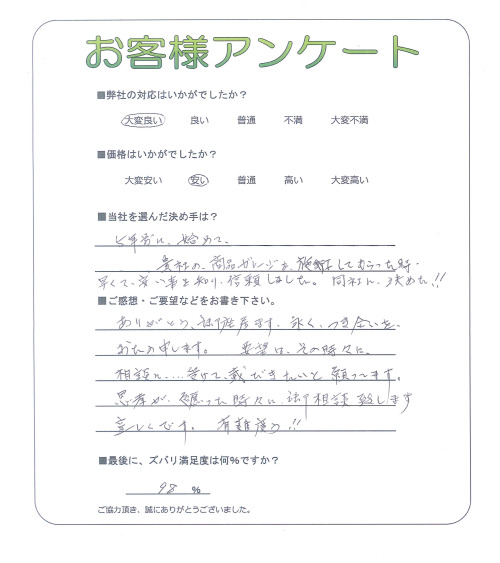 お客様アンケート
■弊社の対応はいかがでしたか？
大変良い 良い 普通 不満 大変不満
■価格はいかがでしたか？
大変安い 安い 普通 高い 大変高い
■当社を選んだ決め手は？
5年前に、始めて、
貴社の、商品ガレージを、施工してもらった時、
早くて、安い事を知り、信頼しました。同社に、決めた!!
■ご感想・ご要望などをお書き下さい。
ありがとう、ます。永く、つき合いを、
お力申します。要望は、その時々に、
相談に....受けて、戴だきたいと願ってます。
が、った時々に、相談致します
宜しくです。有難う!!
■最後に、ズバリ満足度は何％ですか？
98 %
ご協力頂き、誠にありがとうございました。